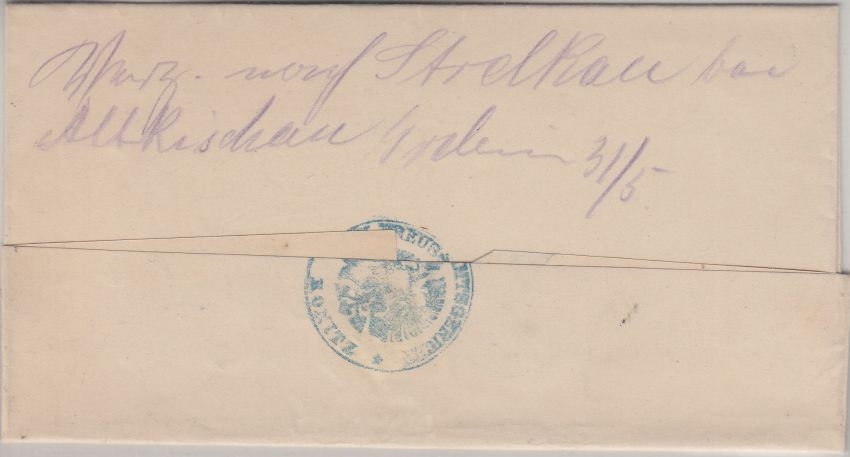 Verz. nach Strelkau bei
Altkischau 31/5.
PREUSS
KONITZ *